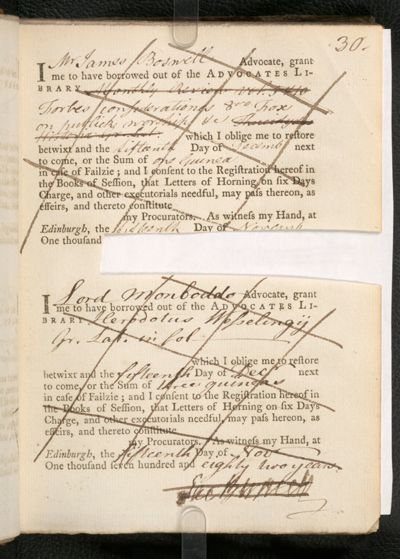 30.
I Mr James Boswell Advocate, grant
me to have borrowed out of the ADVOCATES LI-
BRARY Monthly Review vol.
Forbes considerations 8vo
on publick worship
which I oblige me to reſtore
betwixt and the fifteenth Day of Decemb next
to come, or the Sum of one Guinea
in caſe of Failzie; and I conſent to the Regiſtration hereof in
the Books of Seſſion, that Letters of Horning on ſix Days
Charge, and other executorials needful, may paſs thereon, as
effeirs, and thereto conſtitute
my Procurators. As witneſs my Hand, at
Edinburgh, the fifteenth Day of Novemb
One thouſand
I Lord Monboddo Advocate, grant
me to have borrowed out of the ADVOCATES LI-
BRARY Herodotus Wesselingij
Gr. Lat. in fol.
which I oblige me to reſtore
betwixt and the fifteenth Day of Decr next
to come, or the Sum of three guineas
in caſe of Failzie; and I conſent to the Regiſtration hereof in
the Books of Seſſion, that Letters of Horning on ſix Days
Charge, and other executorials needful, may paſs hereon, as
effeirs, and thereto conſtitute
my Procurators. As witneſs my Hand, at
Edinburgh, the fifteenth Day of Nov
One thouſand ſeven hundred and eighty two years.